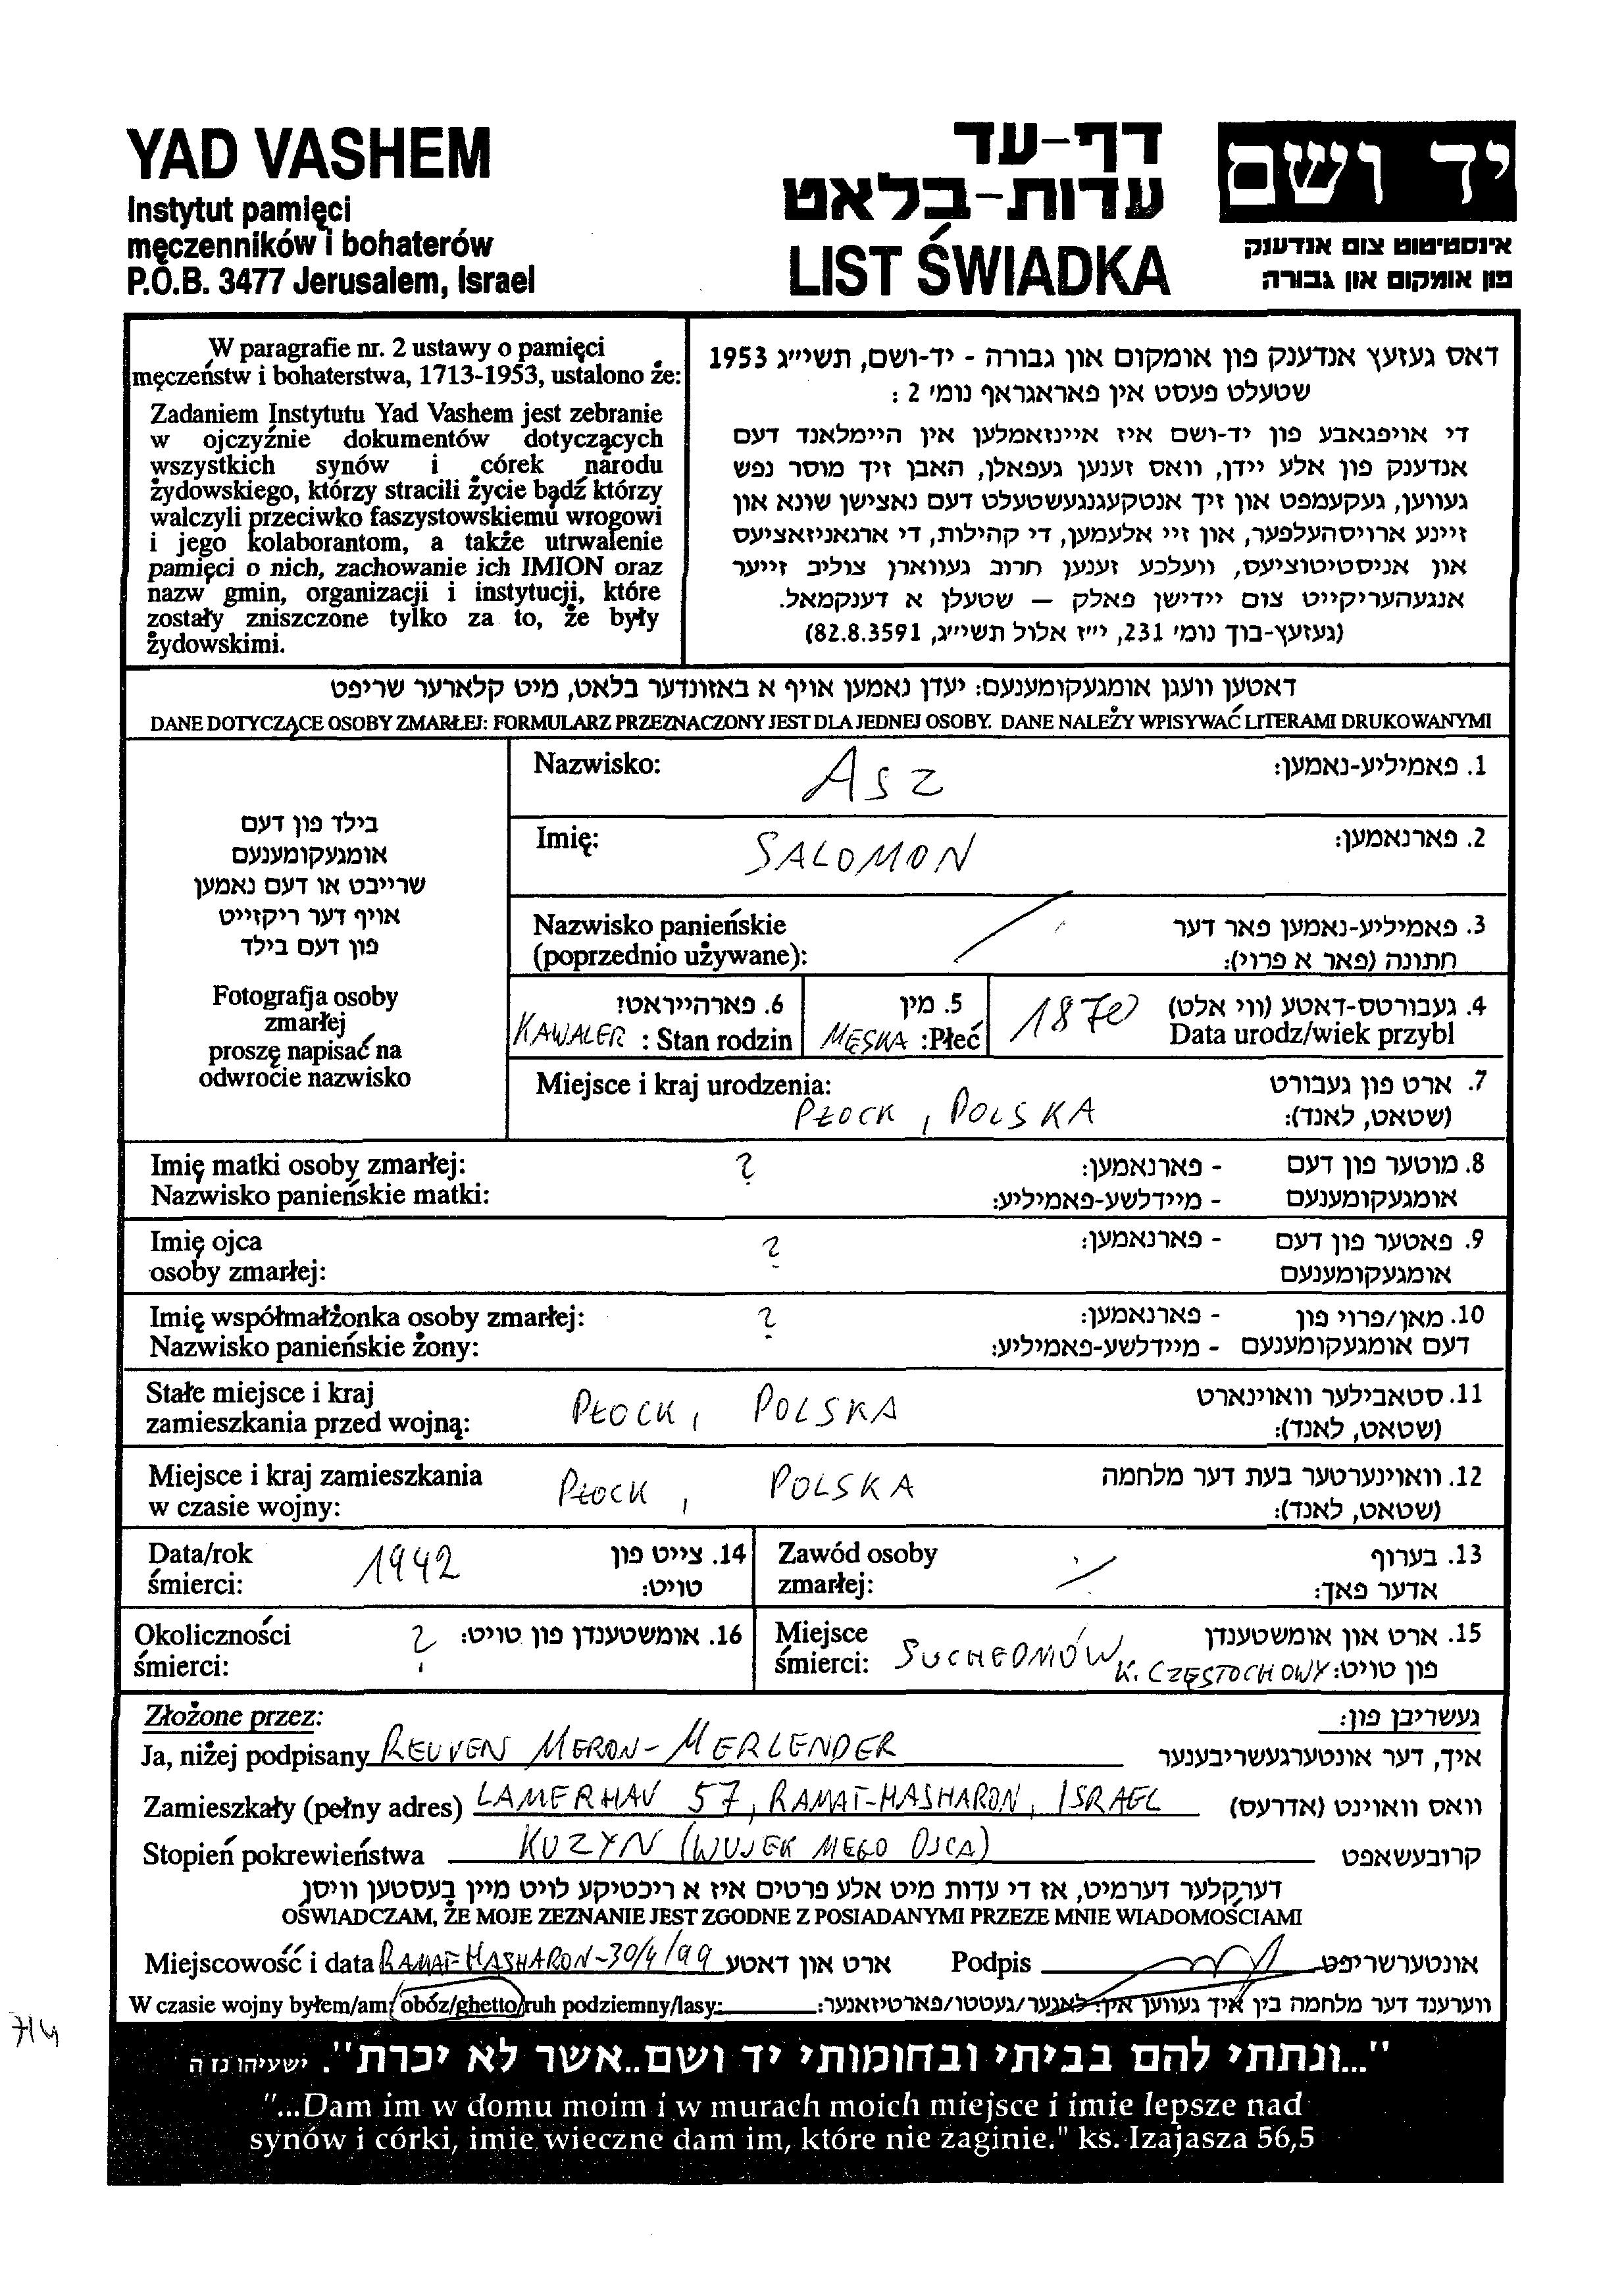 YAD VASHEM
Instytut pamięci
męczenników i bohaterów
P.O.B. 3477 Jerusalem, Israel
דף-עד
עדות-בלאט
LIST ŚWIADKA
יד ושם
אינסטיטוט צום אנדענק
פון אומקום און גבורה
W paragrafie nr. 2 ustawy o pamięci
męczeństw i bohaterstwa, 1713-1953, ustalono że:
Zadaniem Instytutu Yad Vashem jest zebranie
w ojczyźnie dokumentów dotyczących
wszystkich synów i córek narodu
żydowskiego, którzy stracili życie bądź którzy
walczyli przeciwko faszystowskiemu wrogowi
i jego kolaborantom, a także utrwalenie
pamięci o nich, zachowanie ich IMION oraz
nazw gmin, organizacji i instytucji, które
zostały zniszczone tylko za to, że były
żydowskimi.
דאס געזעץ אנדענק פון אומקום און גבורה - יד-ושם, תשי״ג 1953
שטעלט פעסט אין פאראגראף נומ׳ 2 :
די אויפגאבע פון יד-ושם איז איינזאמלען אין היימלאנד דעם
אנדענק פון אלע יידן, וואס זענען געפאלן, האבן זיך מוסר נפש
געווען, געקעמפט און זיך אנטקעגנגעשטעלט דעם נאצישן שונא און
זיינע ארויסהעלפער, און זיי אלעמען, די קהילות, די ארגאניזאציעס
און אניסטיטוציעס, וועלכע זענען חרוב געווארן צוליב זייער
אנגעהעריקייט צום יידישן פאלק – שטעלן א דענקמאל.
(געזעץ-בוך נומ׳ 231, י״ז אלול תשי״ג, 82.8.3591)
דאטען וועגן אומגעקומענעם: יעדן נאמען אויף א באזונדער בלאט, מיט קלארער שריפט
DANE DOTYCZĄCE OSOBY ZMARŁEJ: FORMULARZ PRZEZNACZONY JEST DLA JEDNEJ OSOBY. DANE NALEŻY WPISYWAĆ LITERAMI DRUKOWANYMI
בילד פון דעם
אומגעקומענעם
שרייבט או דעם נאמען
אויף דער ריקזייט
פון דעם בילד
Fotografja osoby
zmarłej
proszę napisać na
odwrocie nazwisko
Nazwisko: ASZ 1. פאמיליע-נאמען:
Imię: SALOMON 2. פארנאמען:
Nazwisko panieńskie 3. פאמיליע-נאמען פאר דער
(poprzednio używane): חתונה (פאר א פרוי):
6. פארהייראט? 5. מין 4. געבורטס-דאטע (ווי אלט)
KAWALER : Stan rodzin MĘSKA :Płeć 1870 Data urodz/wiek przybl
Miejsce i kraj urodzenia: 7. ארט פון געבורט
PŁOCK, POLSKA (שטאט, לאנד):
Imię matki osoby zmarłej: ? - פארנאמען: 8. מוטער פון דעם
Nazwisko panieńskie matki: - מיידלשע-פאמיליע: אומגעקומענעם
Imię ojca ? - פארנאמען: 9. פאטער פון דעם
osoby zmarłej: אומגעקומענעם
Imię współmałżonka osoby zmarłej: ? - פארנאמען: 10. מאן/פרוי פון
Nazwisko panieńskie żony: - מיידלשע-פאמיליע: דעם אומגעקומענעם
Stałe miejsce i kraj 11. סטאבילער וואוינארט
zamieszkania przed wojną: PŁOCK, POLSKA (שטאט, לאנד):
Miejsce i kraj zamieszkania 12. וואוינערטער בעת דער מלחמה
w czasie wojny: PŁOCK, POLSKA (שטאט, לאנד):
Data/rok 1942 14. צייט פון Zawód osoby 13. בערוף
śmierci: טויט: zmarłej: אדער פאך:
Okoliczności ? 16. אומשטענדן פון טויט: Miejsce SUCHEDNIÓW 15. ארט און אומשטענדן
śmierci: śmierci: K. CZĘSTOCHOWY פון טויט:
Złożone przez: געשריבן פון:
Ja, niżej podpisany REUVEN MERON-MERLENDER איך, דער אונטערגעשריבענער
Zamieszkały (pełny adres) LAMERHAV 57, RAMAT-HASHARON, ISRAEL וואס וואוינט (אדרעס)
Stopień pokrewieństwa KUZYN (WUJEK MEGO OJCA) קרובעשאפט
דערקלער דערמיט, אז די עדות מיט אלע פרטים איז א ריכטיקע לויט מיין בעסטען וויסן
OŚWIADCZAM, ŻE MOJE ZEZNANIE JEST ZGODNE Z POSIADANYMI PRZEZE MNIE WIADOMOŚCIAMI
Miejscowość i data RAMAT-HASHARON-30/4/99 ארט און דאטע Podpis אונטערשריפט
W czasie wojny byłem/am: obóz/ghetto/ruh podziemny/lasy: ווערענד דער מלחמה בין איך געווען אין: לאגער/געטטו/פארטיזאנער:
714
"...ונתתי להם בביתי ובחומותי יד ושם..אשר לא יכרת". ישעיהו נז ה
"...Dam im w domu moim i w murach moich miejsce i imie lepsze nad
synów i córki, imie wieczne dam im, które nie zaginie." ks. Izajasza 56,5